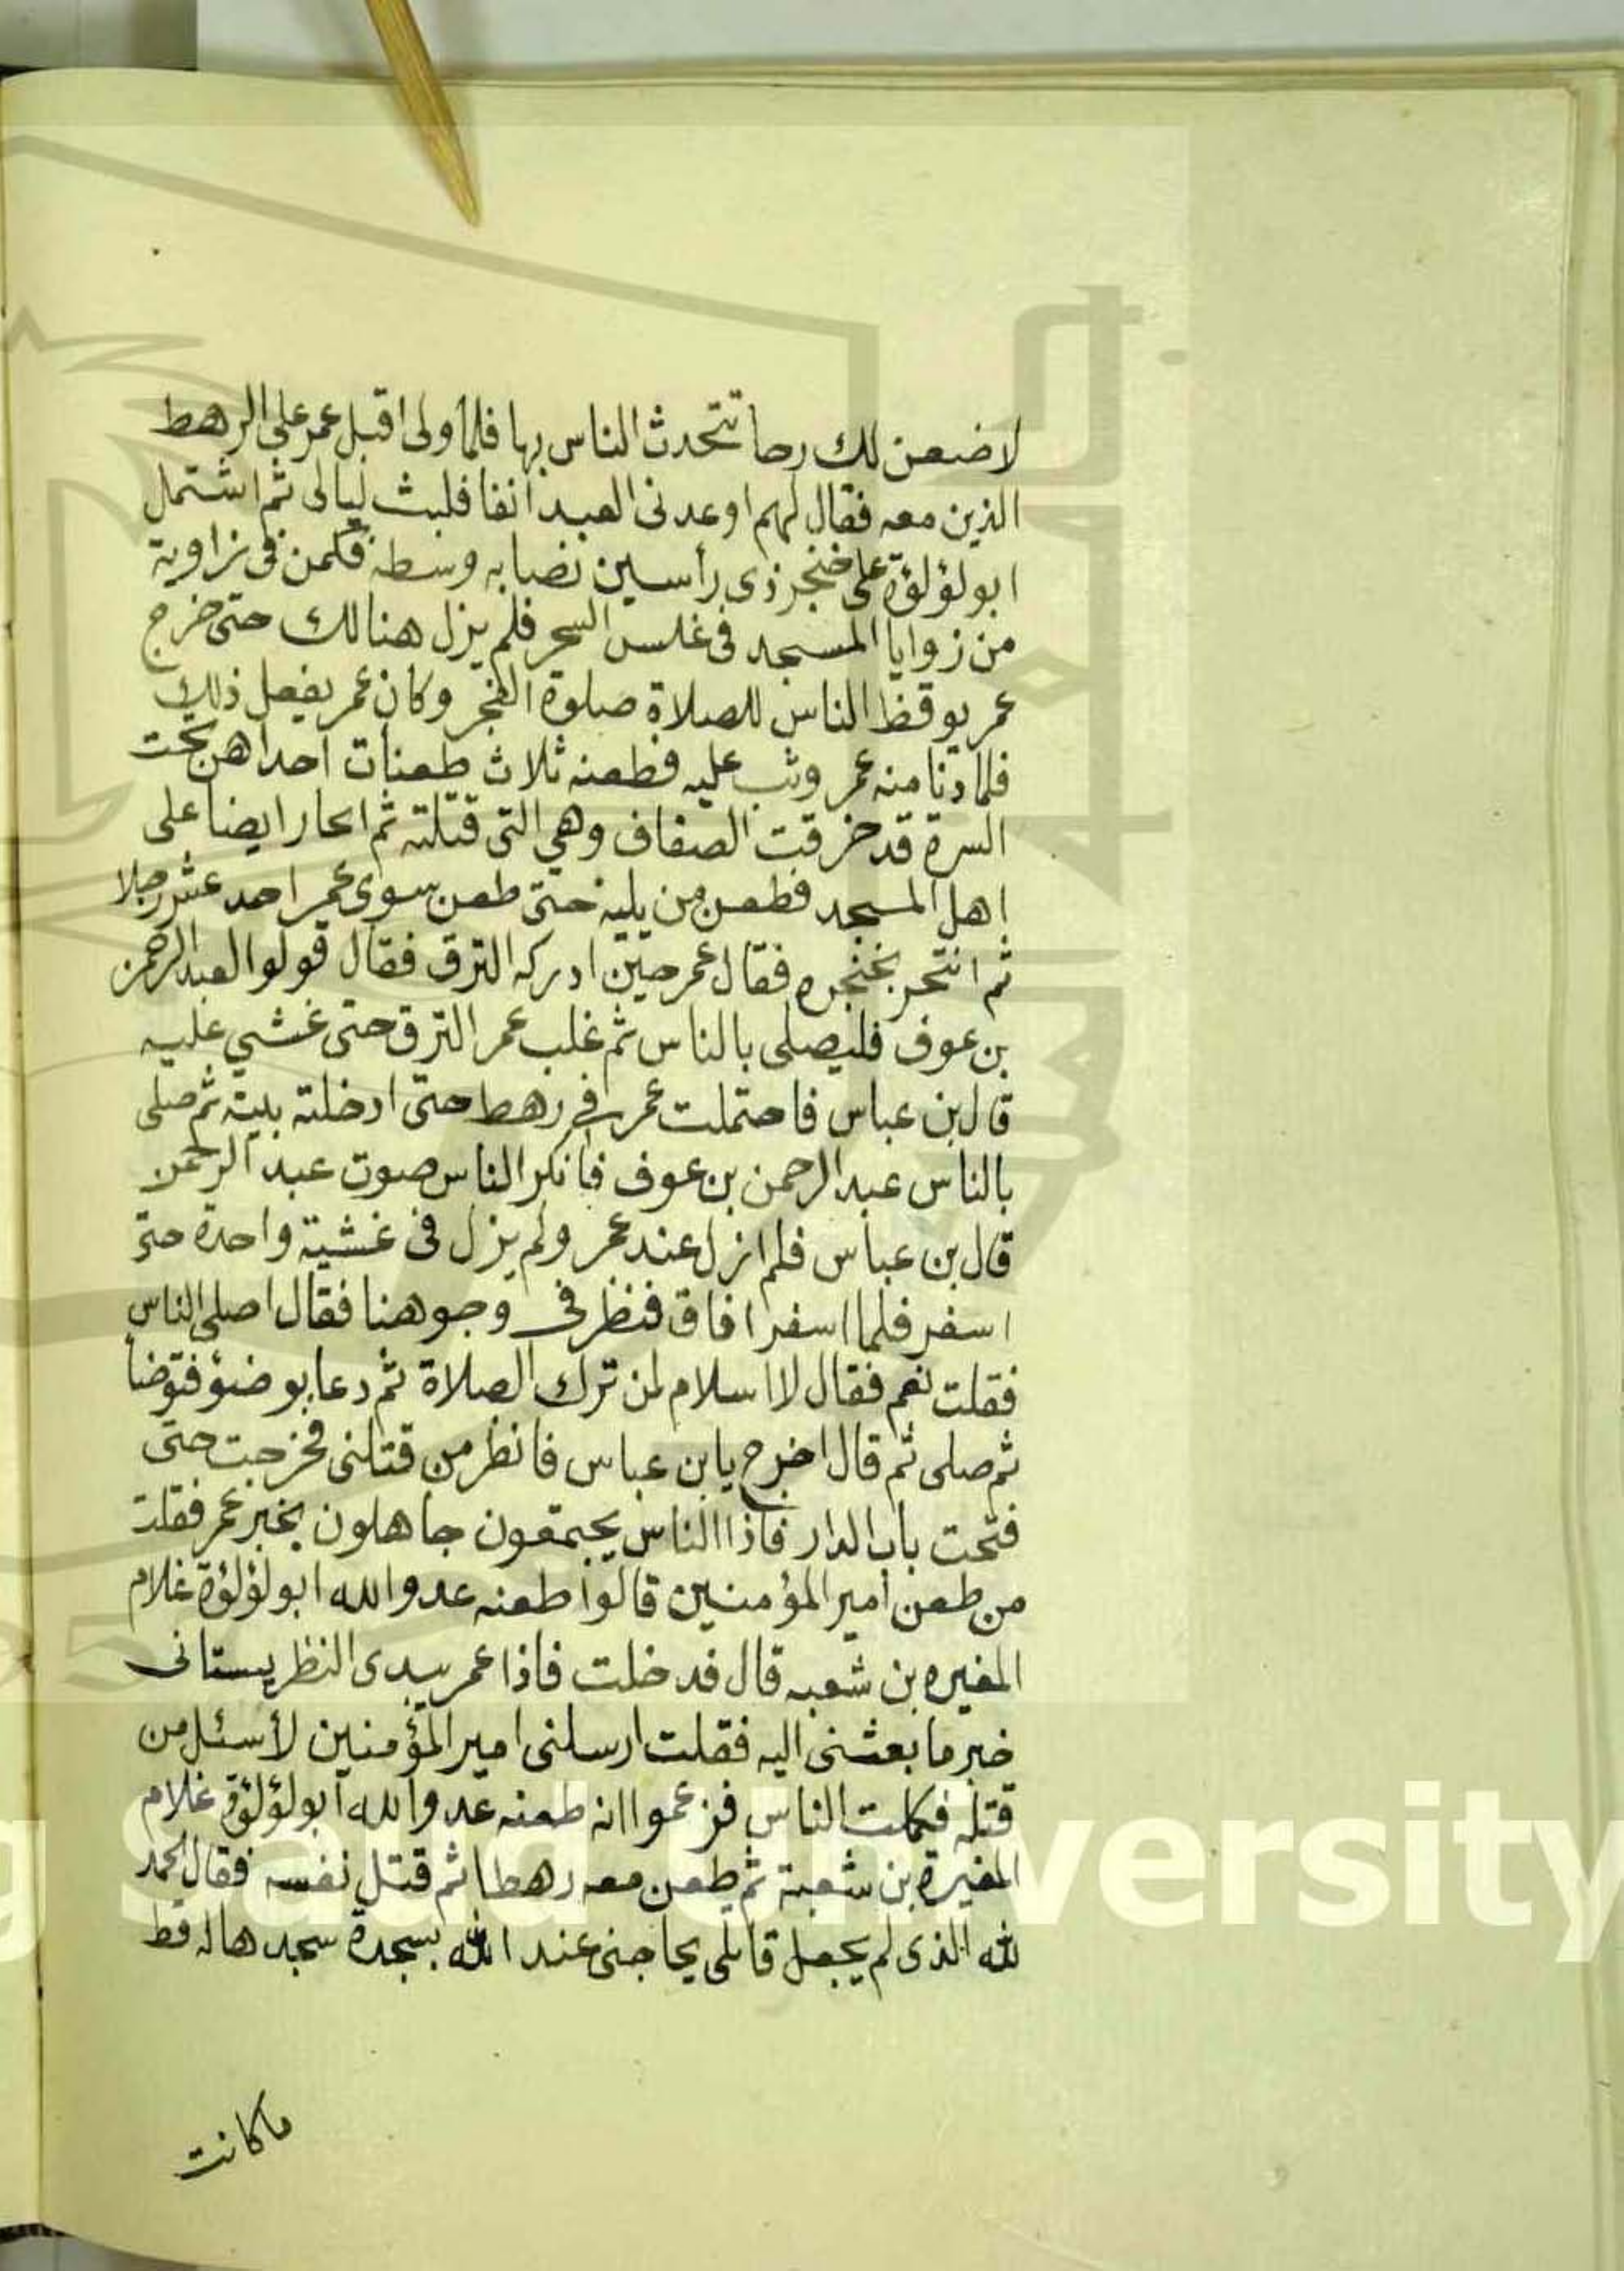 لاضعن لك رحا تتحدث الناس بها فلما ولى اقبل عمر على الرهط
الذين معه فقال لهم اوعدنى العبد آنفا فلبث ليالى ثم اشتمل
ابو لؤلؤة على خنجر ذى رأسين نصابه وسطه فكمن فى زاوية
من زوايا المسجد فى غلس السحر فلم يزل هنالك حتى خرج
عمر يوقظ الناس للصلاة صلوة الفجر وكان عمر يفعل ذلك
فلما دنا منه عمر وثب عليه فطعنه ثلاث طعنات احداهن تحت
السرة قد خرقت الصفاف وهي التى قتلته ثم انحار ايضا على
اهل المسجد فطعن من يليه حتى طعن سوى عمر احد عشر رجلا
ثم انتحر بخنجره فقال عمر حين ادركه النزق فقال قولوا لعبد الرحمن
بن عوف فليصلى بالناس ثم غلب عمر النزق حتى غشي عليه
قال بن عباس فاحتملت عمر فى رهط حتى ادخلته بيته ثم صلى
بالناس عبد الرحمن بن عوف فانكر الناس صوت عبد الرحمن
قال بن عباس فلم ازل عند عمر ولم يزل فى غشية واحدة حتى
اسفر فلما اسفر افاق فنظر فى وجوهنا فقال اصلى الناس
فقلت نعم فقال لا اسلام لمن ترك الصلاة ثم دعا بوضوء فتوضأ
ثم صلى ثم قال اخرج يا بن عباس فانظر من قتلنى فخرجت حتى
فتحت باب الدار فاذا الناس يجتمعون جاهلون بخبر عمر فقلت
من طعن امير المؤمنين قالوا طعنه عدو الله ابو لؤلؤة غلام
المغيره بن شعبه قال فدخلت فاذا عمر يبدى النظر يستانى
خبر ما بعثنى اليه فقلت ارسلنى امير المؤمنين لأسئل من
قتله فكلمت الناس فزعموا انه طعنه عدو الله ابو لؤلؤة غلام
المغيرة بن شعبة ثم طعن معه رهطا ثم قتل نفسه فقال الحمد
لله الذى لم يجعل قاتلى يحاجنى عند الله بسجدة سجدها له قط
ماكانت
King Saud University